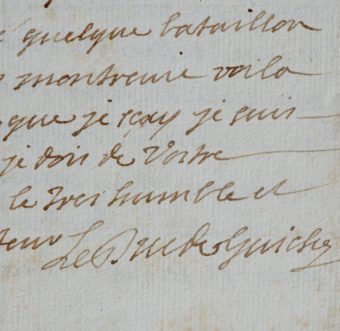 quelque bataillon
montreuie voila
que je sçay je suis
je dois de Vostre
le tres humble et
teur Le Duc de Guiche